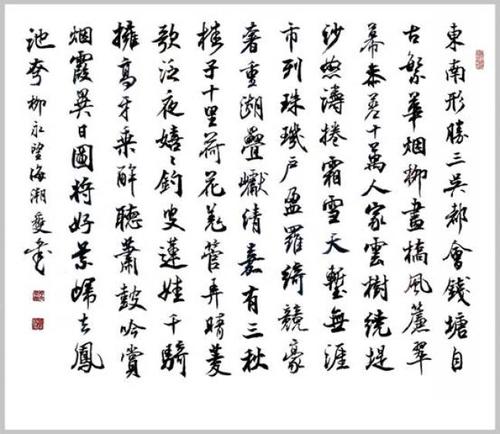 東南形勝三吳都會錢塘自
古繁華烟柳畫橋風簾翠
幕参差十萬人家雲樹繞堤
沙怒濤捲霜雪天塹無涯
市列珠璣戶盈羅綺競豪
奢重湖疊巘清嘉有三秋
桂子十里荷花羌管弄晴菱
歌泛夜嬉〻釣叟蓮娃千騎
擁高牙乘醉聽蕭鼓吟賞
烟霞異日圖將好景歸去鳳
池夸 柳永望海潮